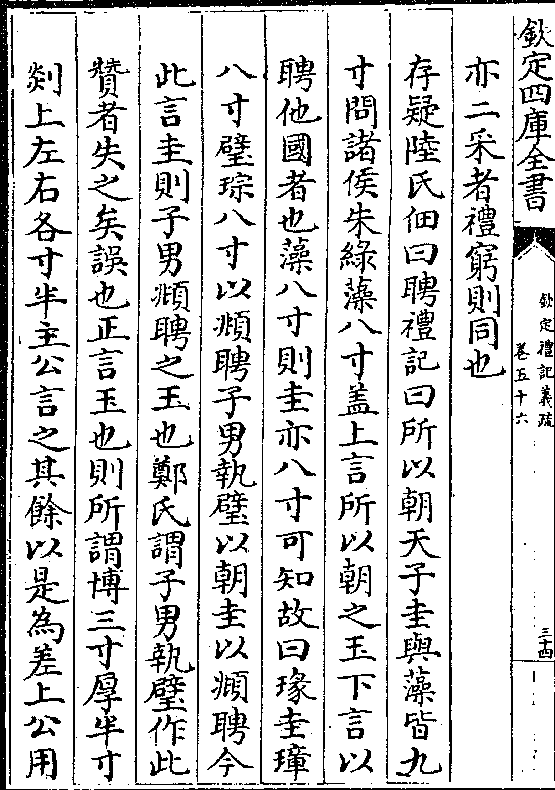 欽定四庫全書
欽定禮記義疏
卷五十六
三十四
亦二采者禮窮則同也
存疑陸氏佃曰聘禮記曰所以朝天子圭與藻皆九
寸問諸侯朱綠藻八寸盖上言所以朝之玉下言以
聘他國者也藻八寸則圭亦八寸可知故曰瑑圭璋
八寸璧琮八寸以頫聘子男執璧以朝圭以頫聘今
此言圭則子男頫聘之玉也鄭氏謂子男執璧作此
贊者失之矣誤也正言玉也則所謂博三寸厚半寸
剡上左右各寸半主公言之其餘以是為差上公用